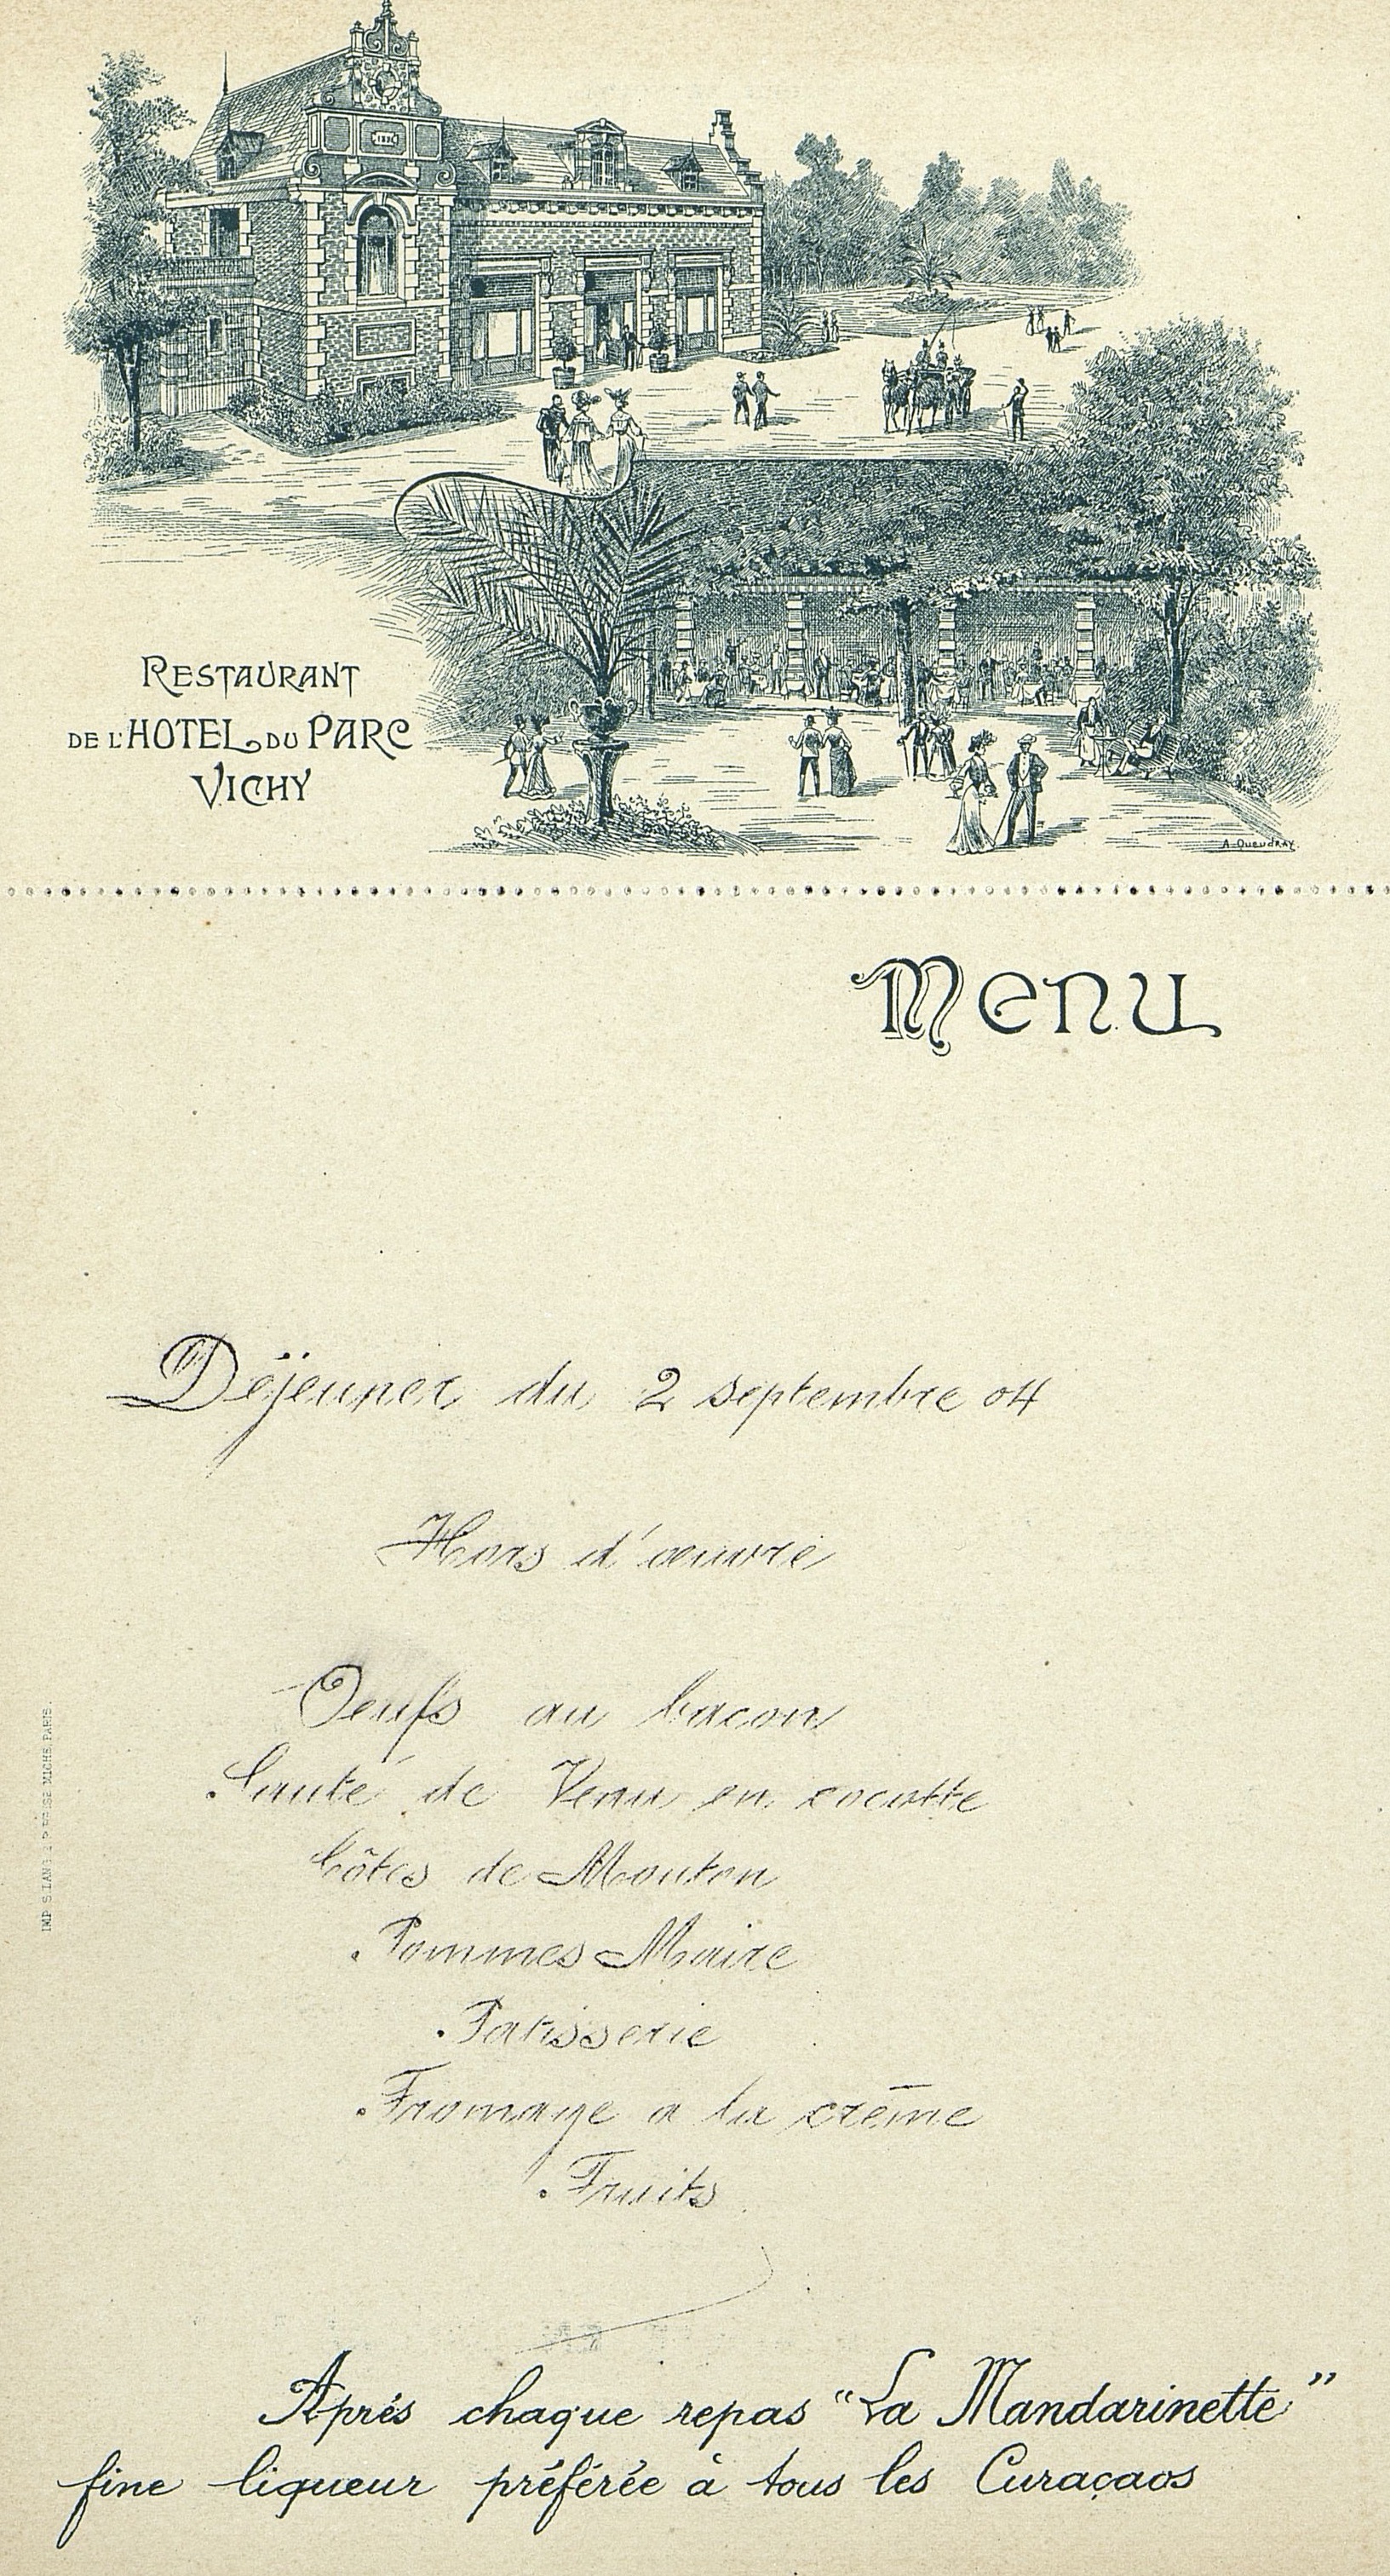 RESTAURANT
DE L'HOTEL DU PARC
VICHY
A. Queudray
Menu
Déjeuner du 2 septembre 04
Hors d'œuvre
Oeufs au bacon
Sauté de Veau en cocotte
Côtes de Mouton
Pommes Maire
Patisserie
Fromage a la crême
Fruits
Après chaque repas "La Mandarinette"
fine liqueur préférée à tous les Curaçaos
IMP. S. LANG PARIS.